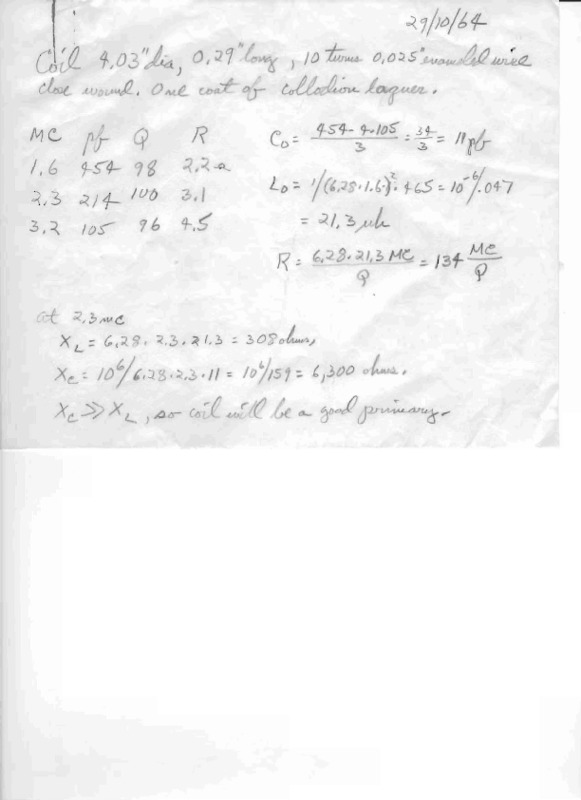 29/10/64
Coil 4.03" dia, 0.29" long, 10 turns 0.025" enameled wire
close wound. One coat of collodion laquer.
MC pf Q R
1.6 454 98 2.2 Ω
2.3 214 100 3.1
3.2 105 96 4.5
C₀ = 454-4·105/3 = 34/3 = 11 pf
L₀ = 1/(6.28·1.6)²·465 = 10⁻⁶/.047
= 21.3 uh
R = 6.28·21.3 MC/Q = 134 MC/Q
at 2.3 mc
X_L = 6.28·2.3·21.3 = 308 ohms,
X_C = 10⁶/6.28·2.3·11 = 10⁶/159 = 6,300 ohms.
X_C >> X_L, so coil will be a good primary.